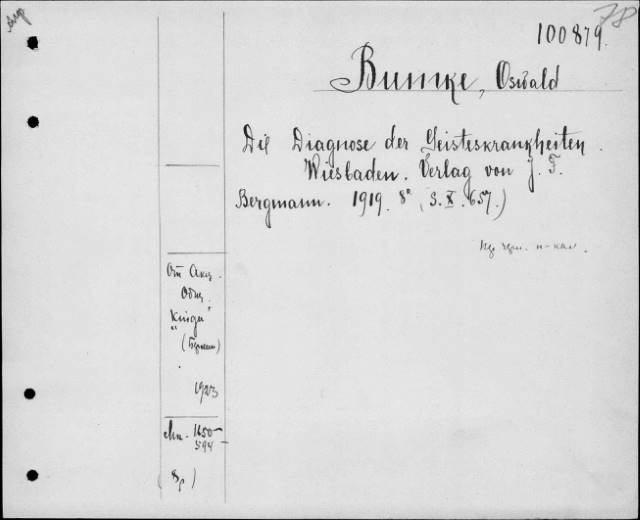 78
100879.
Bumke, Oswald
Die Diagnose der Geisteskrankheiten.
Wiesbaden. Verlag von J. F.
Bergmann. 1919. 8° (S. X. 657.)
От Акц.
Общ.
"Книга"
1923
1650
594